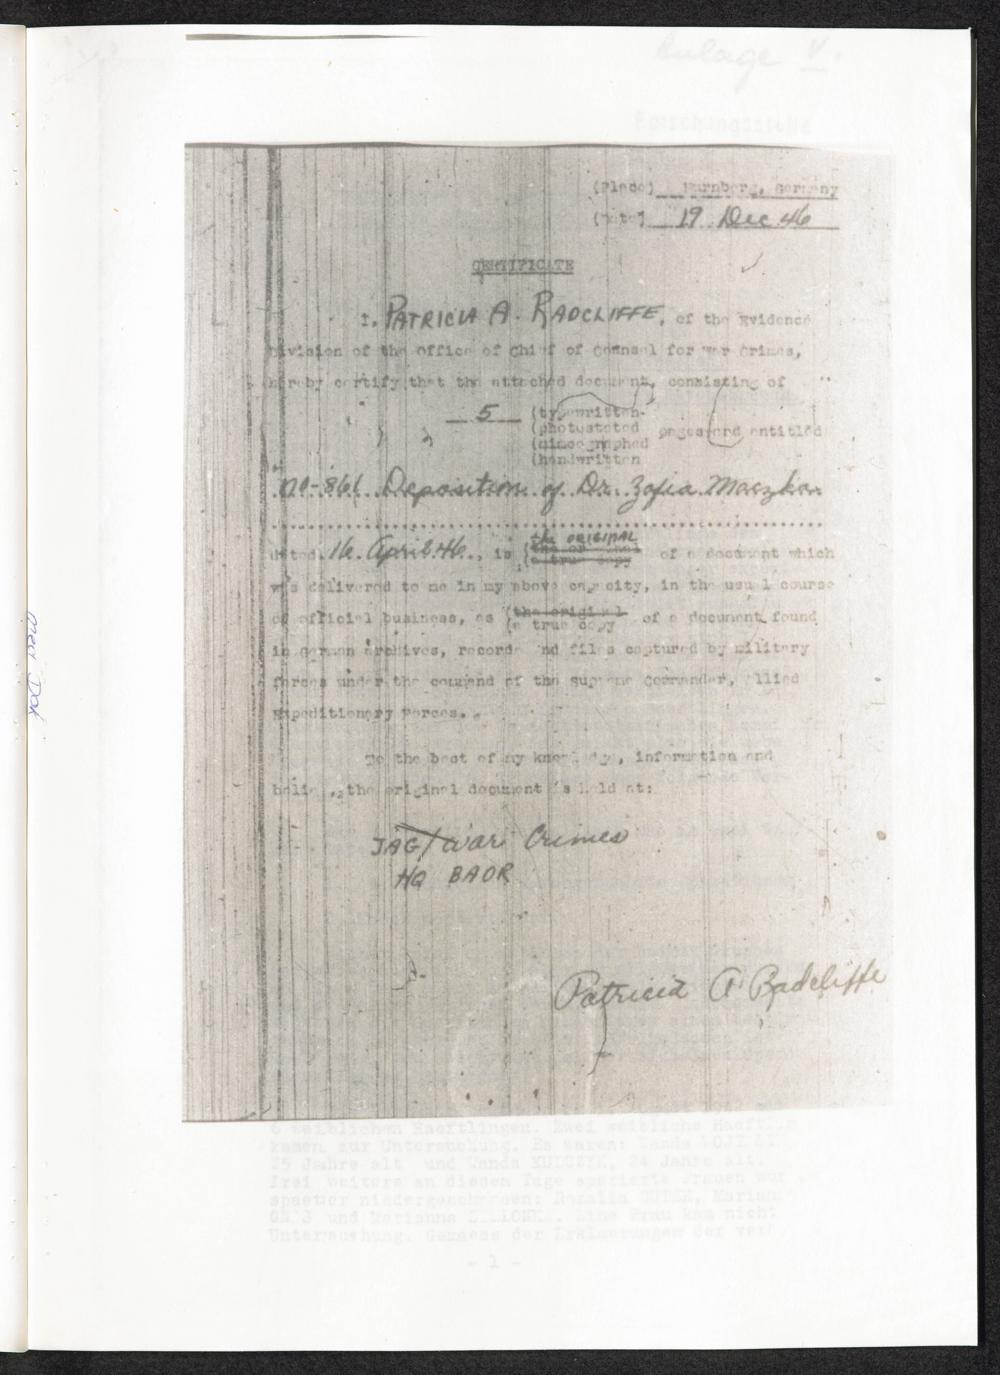 Anlage V.
Forschungsstelle
(Place) Nurnberg, Germany
(Date) 19 Dec 46
CERTIFICATE
I, PATRICIA A. RADCLIFFE, of the Evidence
Division of the Office of Chief of Counsel for War Crimes,
hereby certify that the attached document, consisting of
5 (typewritten
(photostated pages and entitled
(mimeographed
(handwritten
NO-861 Deposition of Dr. Zofia Maczka
dated 16 April 46, is (the ORIGINAL
(the original
(a true copy of a document which
was delivered to me in my above capacity, in the usual course
of official business, as (the original
(a true copy of a document found
in German archives, records and files captured by military
forces under the command of the Supreme Commander, Allied
Expeditionary Forces.
To the best of my knowledge, information and
belief, the original document is held at:
JAG/War Crimes
HQ BAOR
Patricia A Radcliffe
6 weiblichen Haeftlingen. Zwei weibliche
kamen zur Untersuchung. Es waren: Wanda
25 Jahre alt und Wanda KULCZYK, 24 Jahre alt.
Drei weitere an diesem Tage operierte Frauen
spaeter niedergeschossen: Rozalia GUTEK,
und Marianna Eine Frau kam nicht
Untersuchung. Gemaess der Erklaerungen der
- 1 -